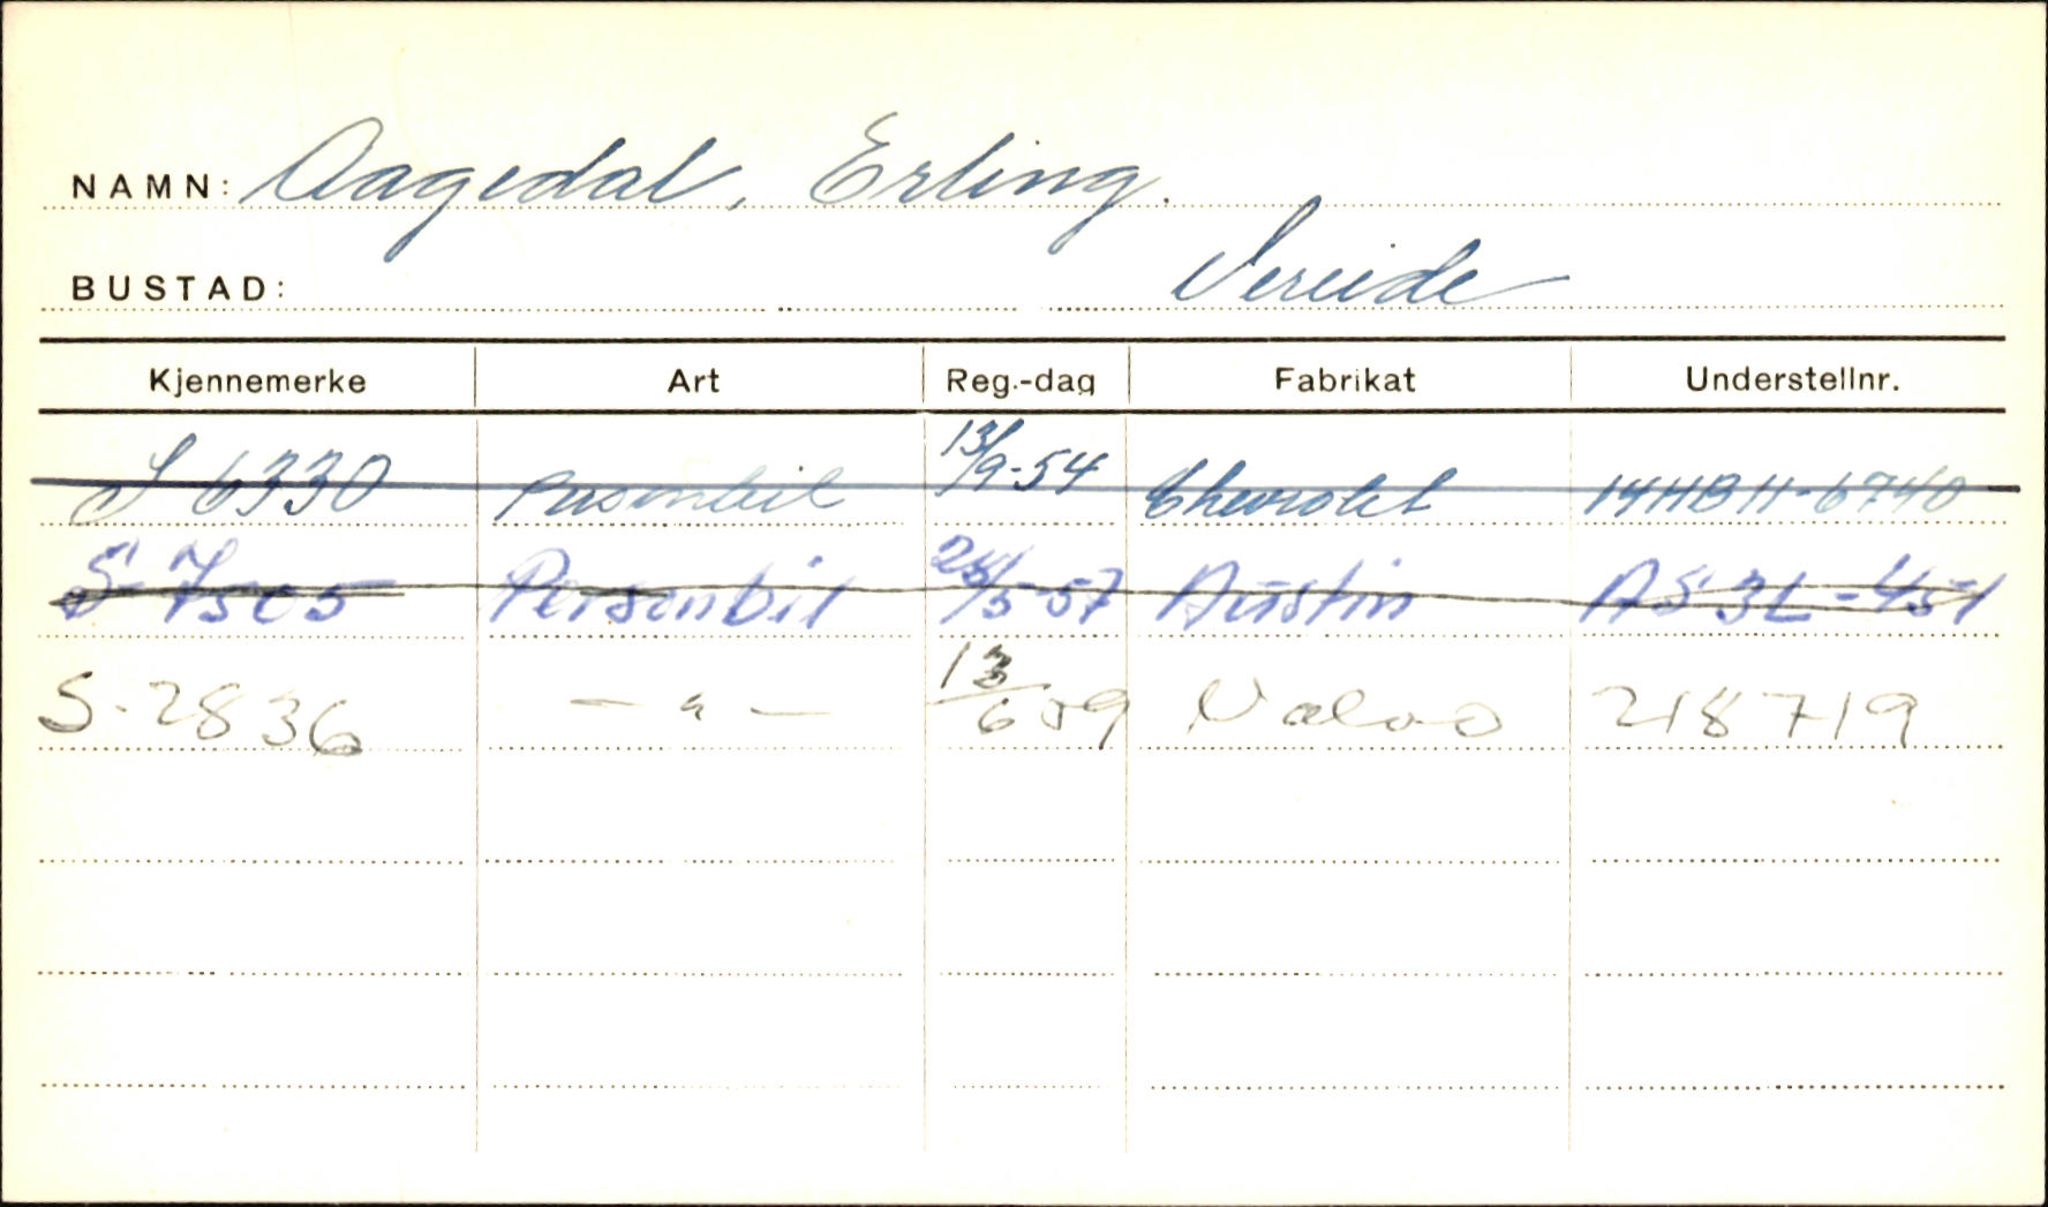 NAMN: Aagedal, Erling.
BUSTAD: Vereide
Kjennemerke Art Reg.-dag Fabrikat Understellnr.
S 6330 Personbil 13/9-54 Chevrolet 14HBH-6740
S-7505 Personbil 28/5-57 Austin AS3L-451
S-2836 — " — 13/6 59 Volvo 218719